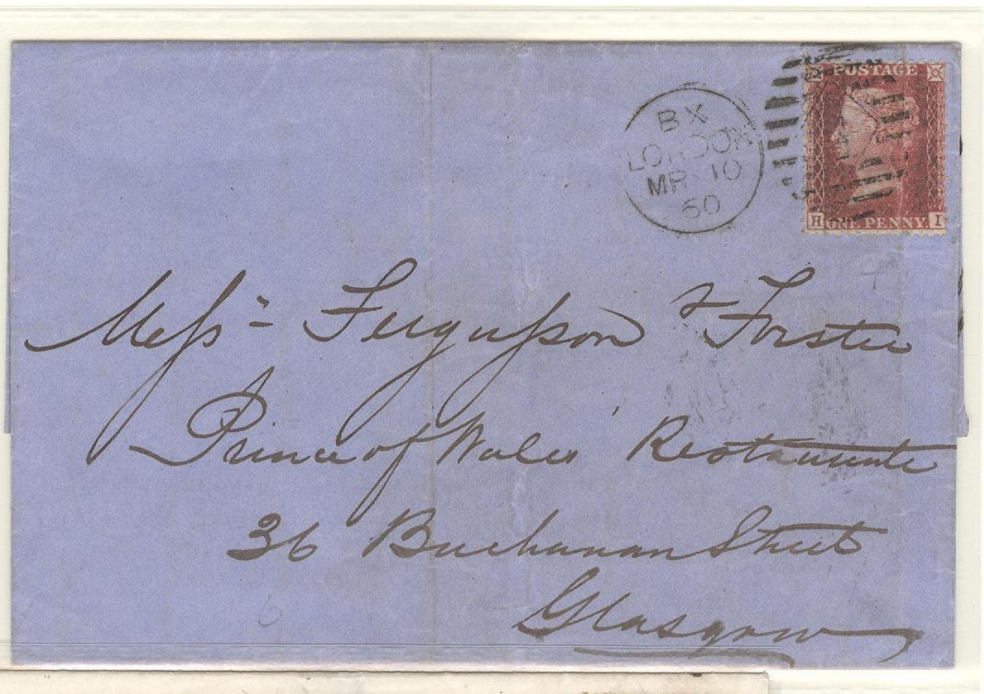 BX
LONDON
MR 10
60
POSTAGE
H ONE PENNY. I
Messrs Fergusson & Forster
Prince of Wales' Restaurante
36 Buchanan Street
Glasgow